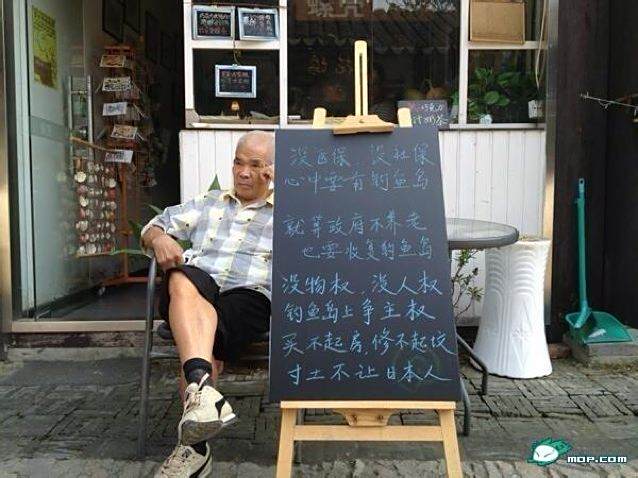 螺壳
巧克力
没医保、没社保
心中要有钓鱼岛
就算政府不养老
也要收复钓鱼岛
没物权、没人权
钓鱼岛上争主权
买不起房，修不起坟
寸土不让日本人
MOP.COM